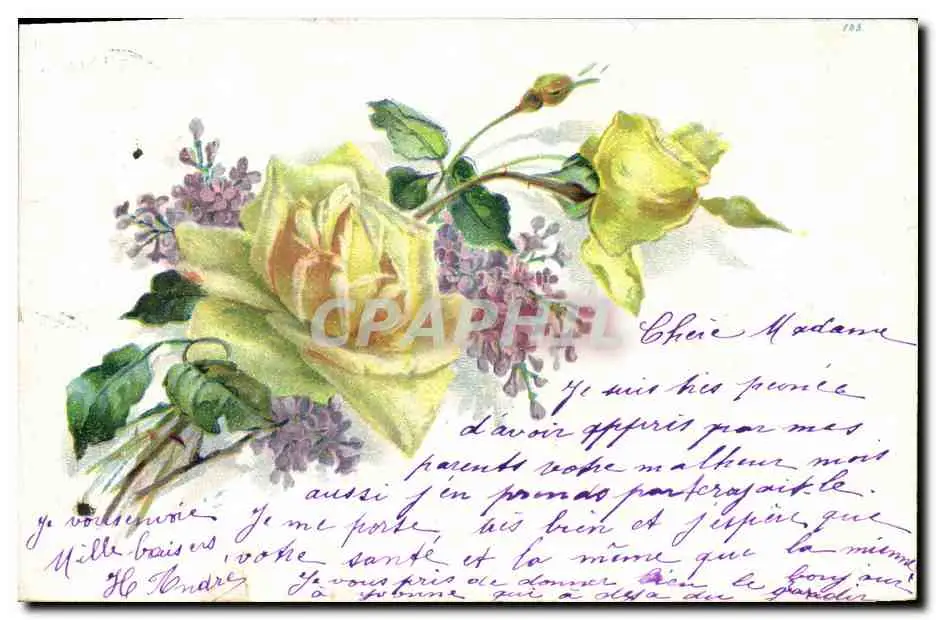 103
CPAPHIL
Chère Madame
Je suis très peinée
d'avoir appris par mes
parents votre malheur mois
aussi j'en prends part
Je me porte très bien et j'espère que
votre santé et la même que la mienne
Je vous pris de donner bien le bonjour
à Yvonne qui a déjà du grandir
Je vous envoie
Mille baisers
H Andre